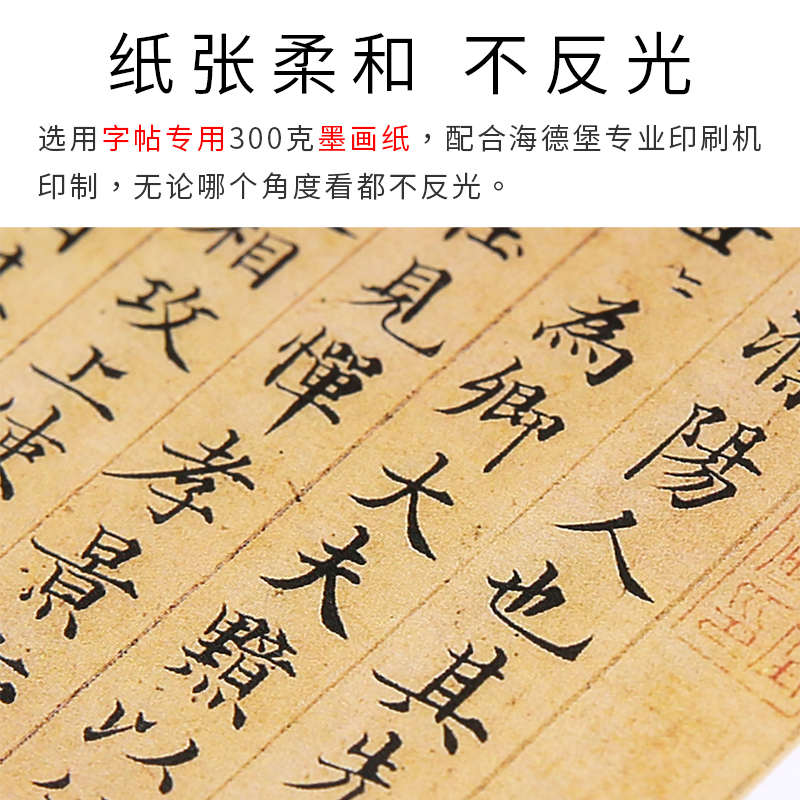 纸张柔和 不反光
选用字帖专用300克墨画纸，配合海德堡专业印刷机
印制，无论哪个角度看都不反光。
濮陽人也其先
為卿大夫黯以
見憚孝景
相攻上使